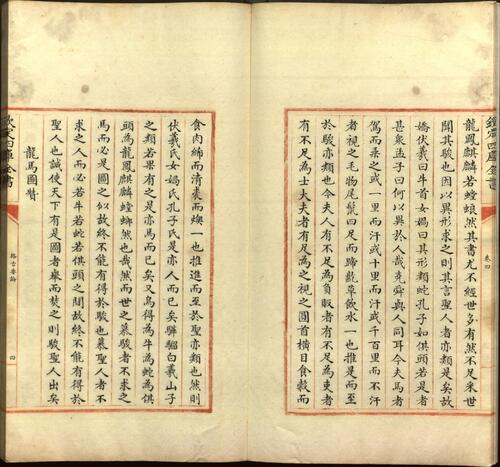 欽定四庫全書
卷四
龍鳳麒麟若螳蜋然其書尤不經世多有然不足采世
聞其駿也因以異形求之則其言聖人者亦類是矣故
嬌伏羲曰牛首女媧曰其形類蛇孔子如倛頭若是者
甚衆孟子曰何以異於人哉堯舜與人同耳今夫馬者
駕而柔之或一里而汗或十里而汗或千百里而不汗
者視之毛物尾鬛四足而蹄齕草飲水一也推是而至
於駿亦類也今夫人有不足為負販者有不足為吏者
有不足為士大夫者有足為之視之圓首橫目食穀而
食肉絺而清裘而燠一也推進而至於聖亦類也然則
伏羲氏女媧氏孔子氏是亦人而已矣驊騮白羲山子
之類若果有之是亦馬而已矣又烏得為牛為蛇為倛
頭為龍鳳麒麟螳蜋然也哉然而世之慕駿者不求之
馬而必是圖之似故終不能有得於駿也慕聖人者不
求之人而必若牛若蛇若倛頭之間故終不能有得於
聖人也誠使天下有是圖者舉而焚之則駿聖人出矣
龍馬圖贊
欽定四庫全書
四